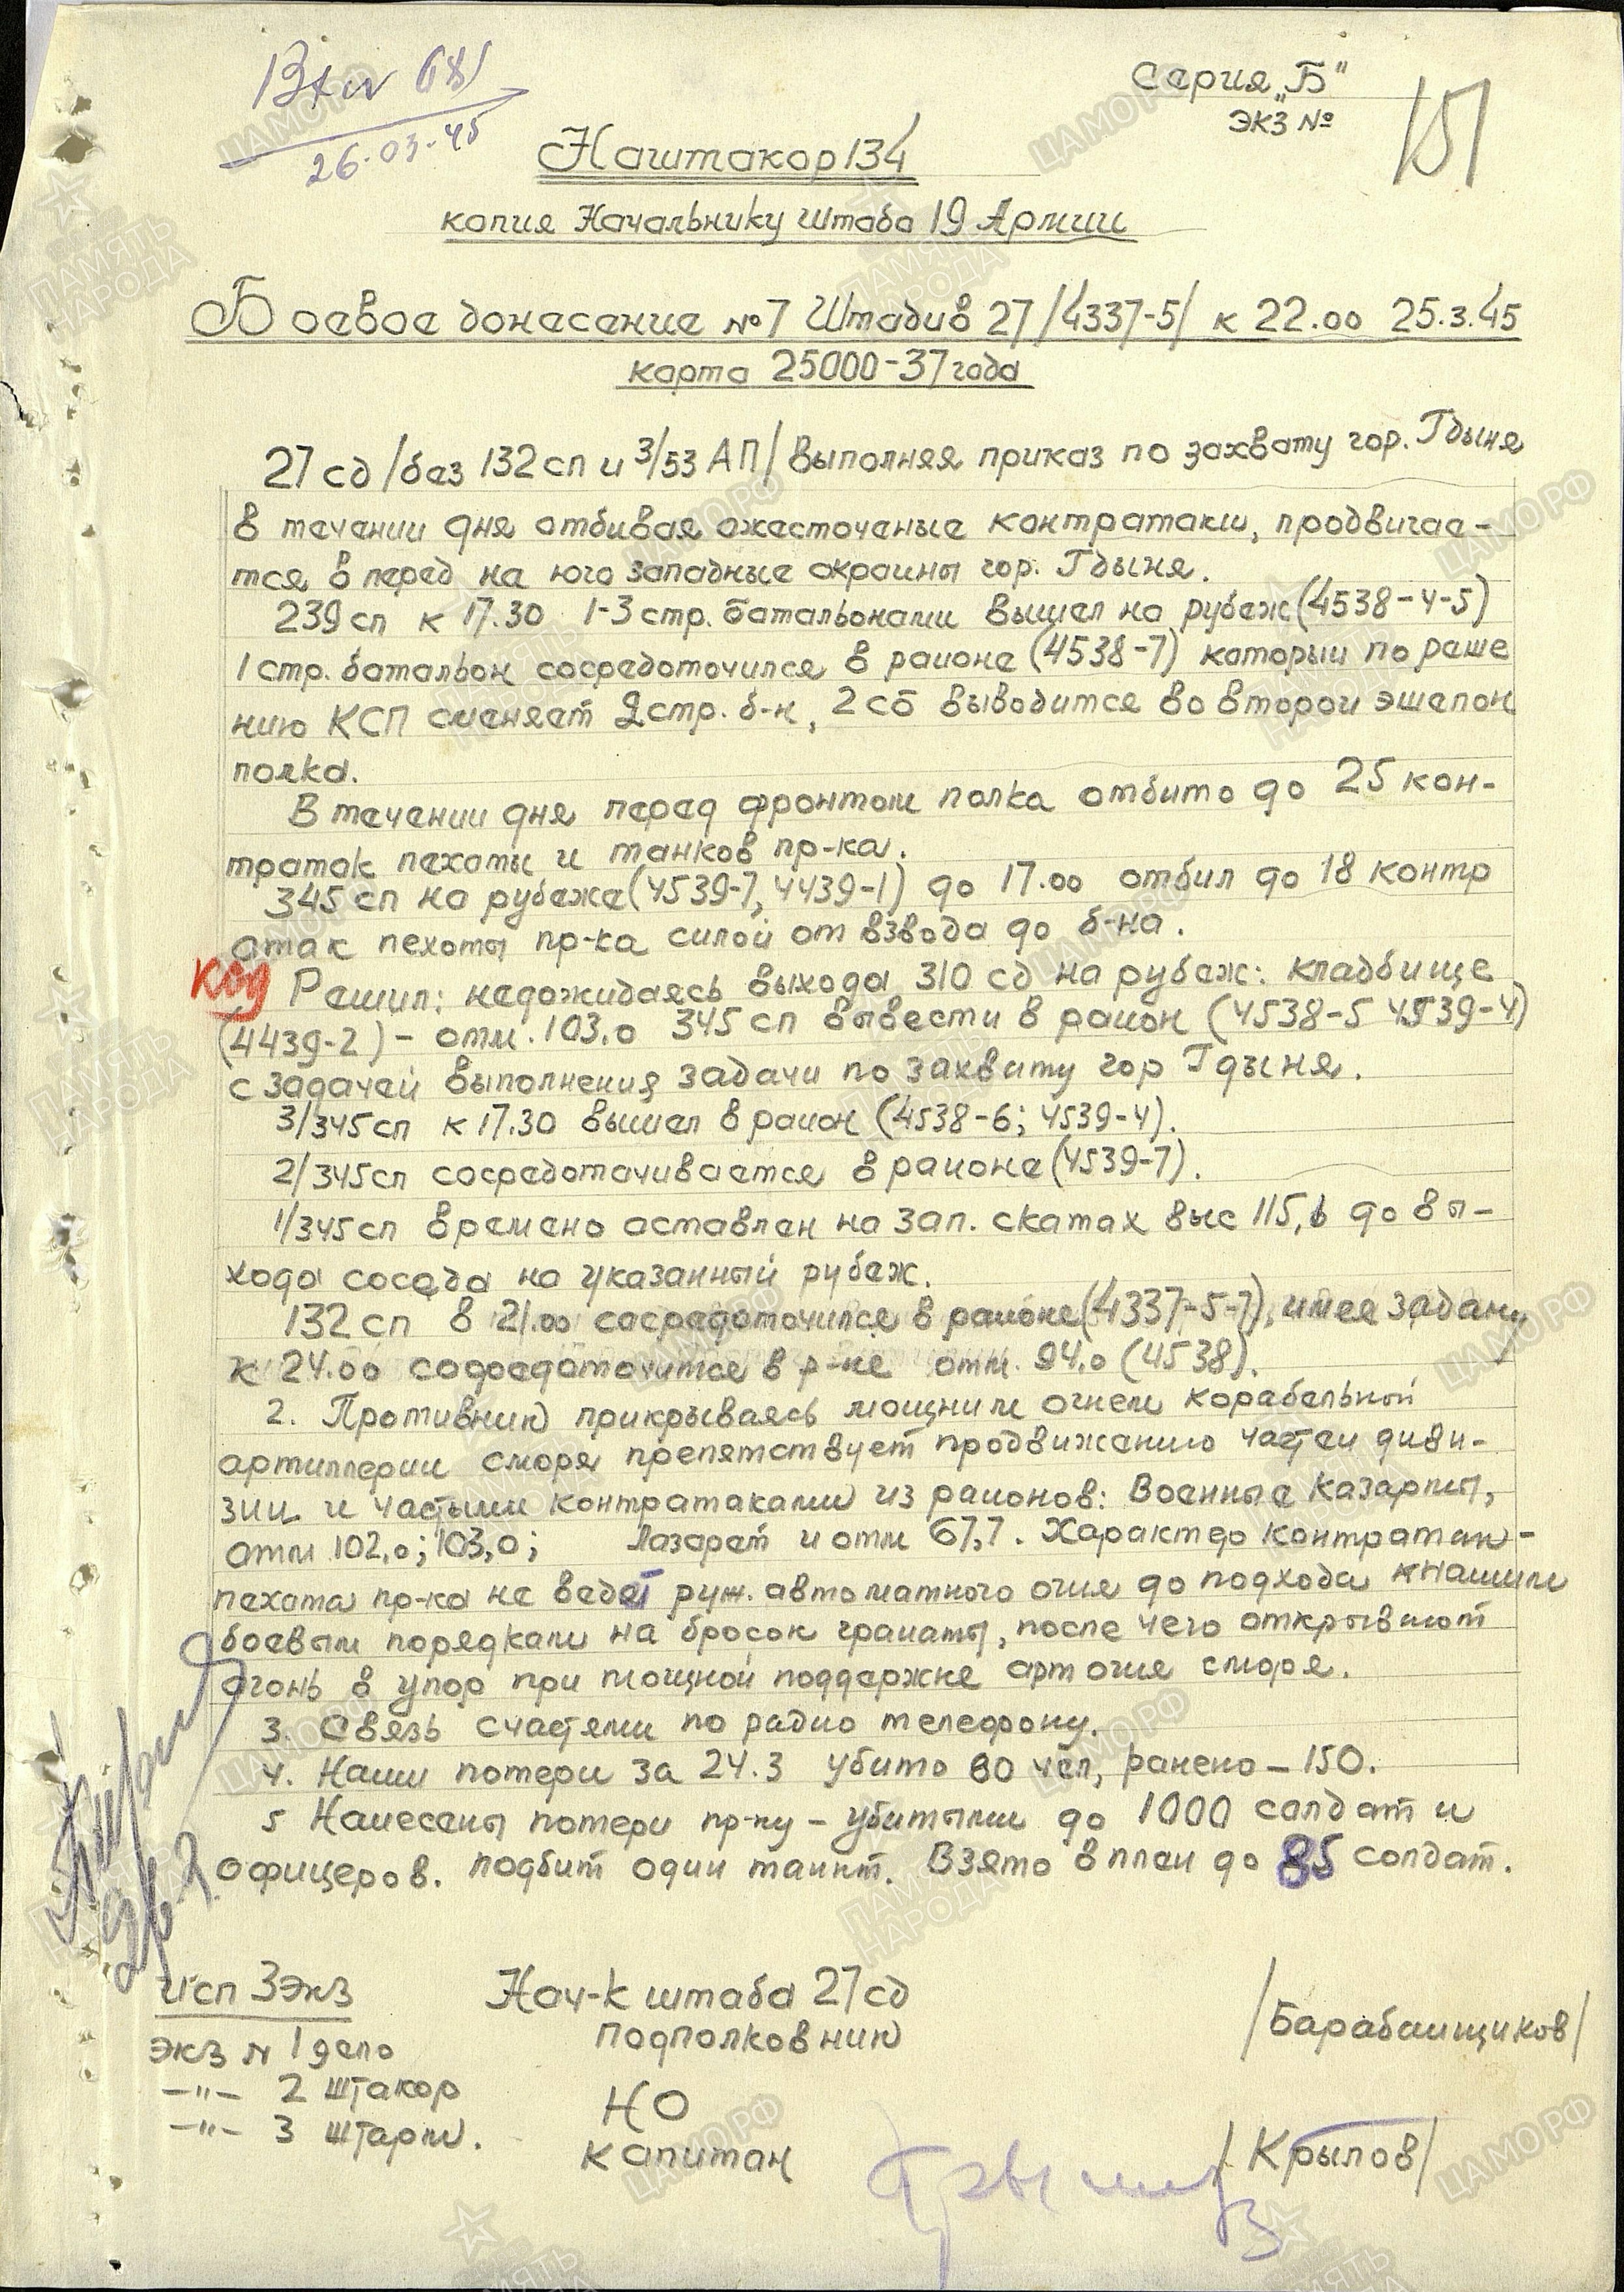 Вх № 681
26.03.45
Серия „Б"
экз №
151
Наштакор 134
копия Начальнику штаба 19 Армии
Боевое донесение №7 Штадив 27 /4337-5/ к 22.00 25.3.45
карта 25000-37 года
27 сд /без 132 сп и 3/53 АП/ выполняя приказ по захвату гор. Гдыня
в течении дня отбивая ожесточеные контратаки, продвигае-
тся в перед на юго западные окраины гор. Гдыня.
239 сп к 17.30 1-3 стр. батальонами вышел на рубеж (4538-4-5)
1 стр. батальон сосредоточился в районе (4538-7) который по реше
нию КСП сменяет 2 стр. б-н, 2 сб выводится во второй эшелон
полка.
В течении дня перед фронтом полка отбито до 25 кон-
тратак пехоты и танков пр-ка.
345 сп на рубеже (4539-7, 4439-1) до 17.00 отбил до 18 контр
атак пехоты пр-ка силой от взвода до б-на.
код Решил: недожидаясь выхода 310 сд на рубеж: кладбище
(4439-2) - отм. 103.0 345 сп вывести в район (4538-5 4539-4)
с задачей выполнения задачи по захвату гор Гдыня.
3/345 сп к 17.30 вышел в район (4538-6; 4539-4).
2/345 сп сосредотачивается в районе (4539-7).
1/345 сп времено оставлен на зап. скатах выс 115,6 до вы-
хода соседа на указанный рубеж.
132 сп в 21.00 сосредоточился в районе (4337-5-7), имея задачу
к 24.00 сосредоточится в р-не отм. 94.0 (4538).
2. Противник прикрываясь мощним огнем корабельной
артиллерии сморя препятствует продвижению частей диви-
зии и частыми контратаками из районов: Военные Казармы,
отм 102,0; 103,0; Лазарет и отм 67,7. Характер контратак-
пехота пр-ка не ведет руж. автоматного огня до подхода к нашим
боевым порядкам на бросок гранаты, после чего открывают
огонь в упор при мощной поддержке арт огня сморя.
3. Связь счастями по радио телефону.
4. Наши потери за 24.3 убито 60 чел, ранено - 150.
5 Нанесены потери пр-ку - убитыми до 1000 солдат и
офицеров. подбит один танкт. Взято в плен до 85 солдат.
26.3
Исп 3 экз
экз № 1 дело
-"- 2 штакор
-"- 3 штарм.
Нач-к штаба 27 сд
подполковник
/Барабанщиков/
НО
капитан
/Крылов/